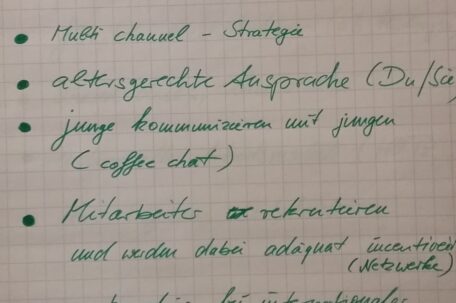 • Multi channel - Strategie
• altersgerechte Ansprache (Du/Sie)
• junge kommunizieren mit jungen
(coffee chat)
• Mitarbeiter rekrutieren
und werden dabei adäquat incentiviert
(Netzwerke)
bei internationaler